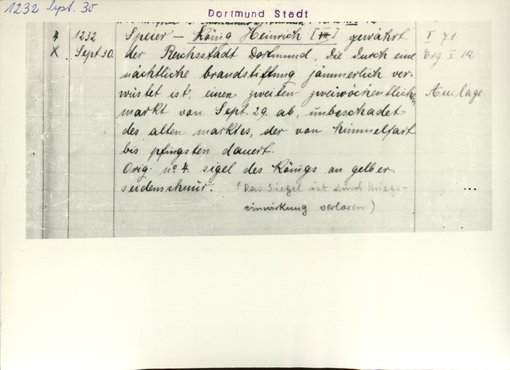 1232 Sept. 30
Dortmund Stadt
4 1232 Speier – König Heinrich [VII.] gewährt I 71
X Sept 30. der Reichsstadt Dortmund, die durch eine Erg I 14
nächtliche brandstiftung jämmerlich ver-
wüstet ist, einen zweiten zweiwöchentlichen Anlage
markt von Sept. 29. ab, unbeschadet
des alten marktes, der von himmelfart
bis pfingsten dauert.
Orig. nº 4. sigel des Königs an gelber
seidenschnur. (Das Siegel ist durch Kriegs- ...
einwirkung verloren)